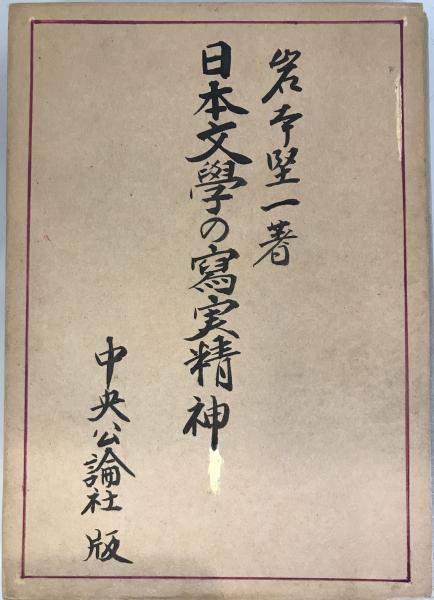 岩本堅一著
日本文學の寫実精神
中央公論社版